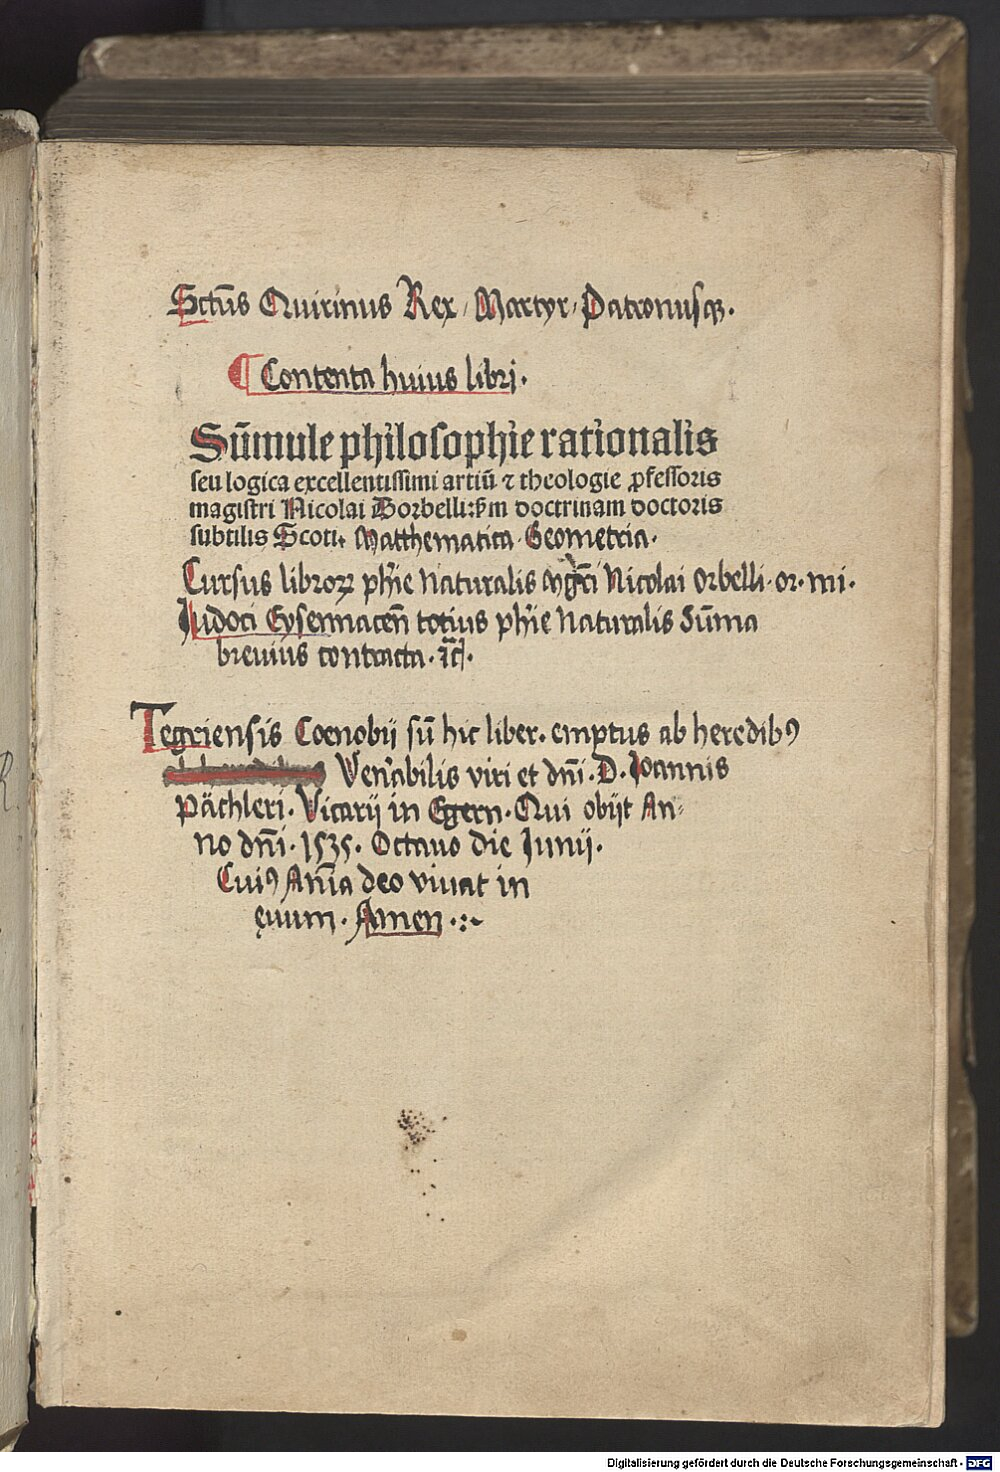 Sctūs Quirinus Rex, Martyr, Patronusqꝫ.
¶ Contenta huius libri.
Sūmule philosophie rationalis
seu logica excellentissimi artiū ⁊ theologie ꝓfessoris
magistri Nicolai Dorbelli: ẜm doctrinam doctoris
subtilis Scoti. Matthematica. Geometria.
Cursus libroꝝ phīe Naturalis Mgr̄i Nicolai Orbelli. or. mi.
Iudoci Eysennaceñ totius phīe Naturalis Sūma
breuius contracta. ⁊c̄.
Tegriensis Coenobij sū hic liber. emptus ab heredibꝰ
Venābilis viri et dn̄i. D. Ioannis
Pächleri. Vicarij in Egern. Qui obijt An-
no dn̄i. 1535. Octauo die Iunij.
Cuiꝰ Anīa deo viuat in
ęuum. Amen .:~
Digitalisierung gefördert durch die Deutsche Forschungsgemeinschaft - DFG